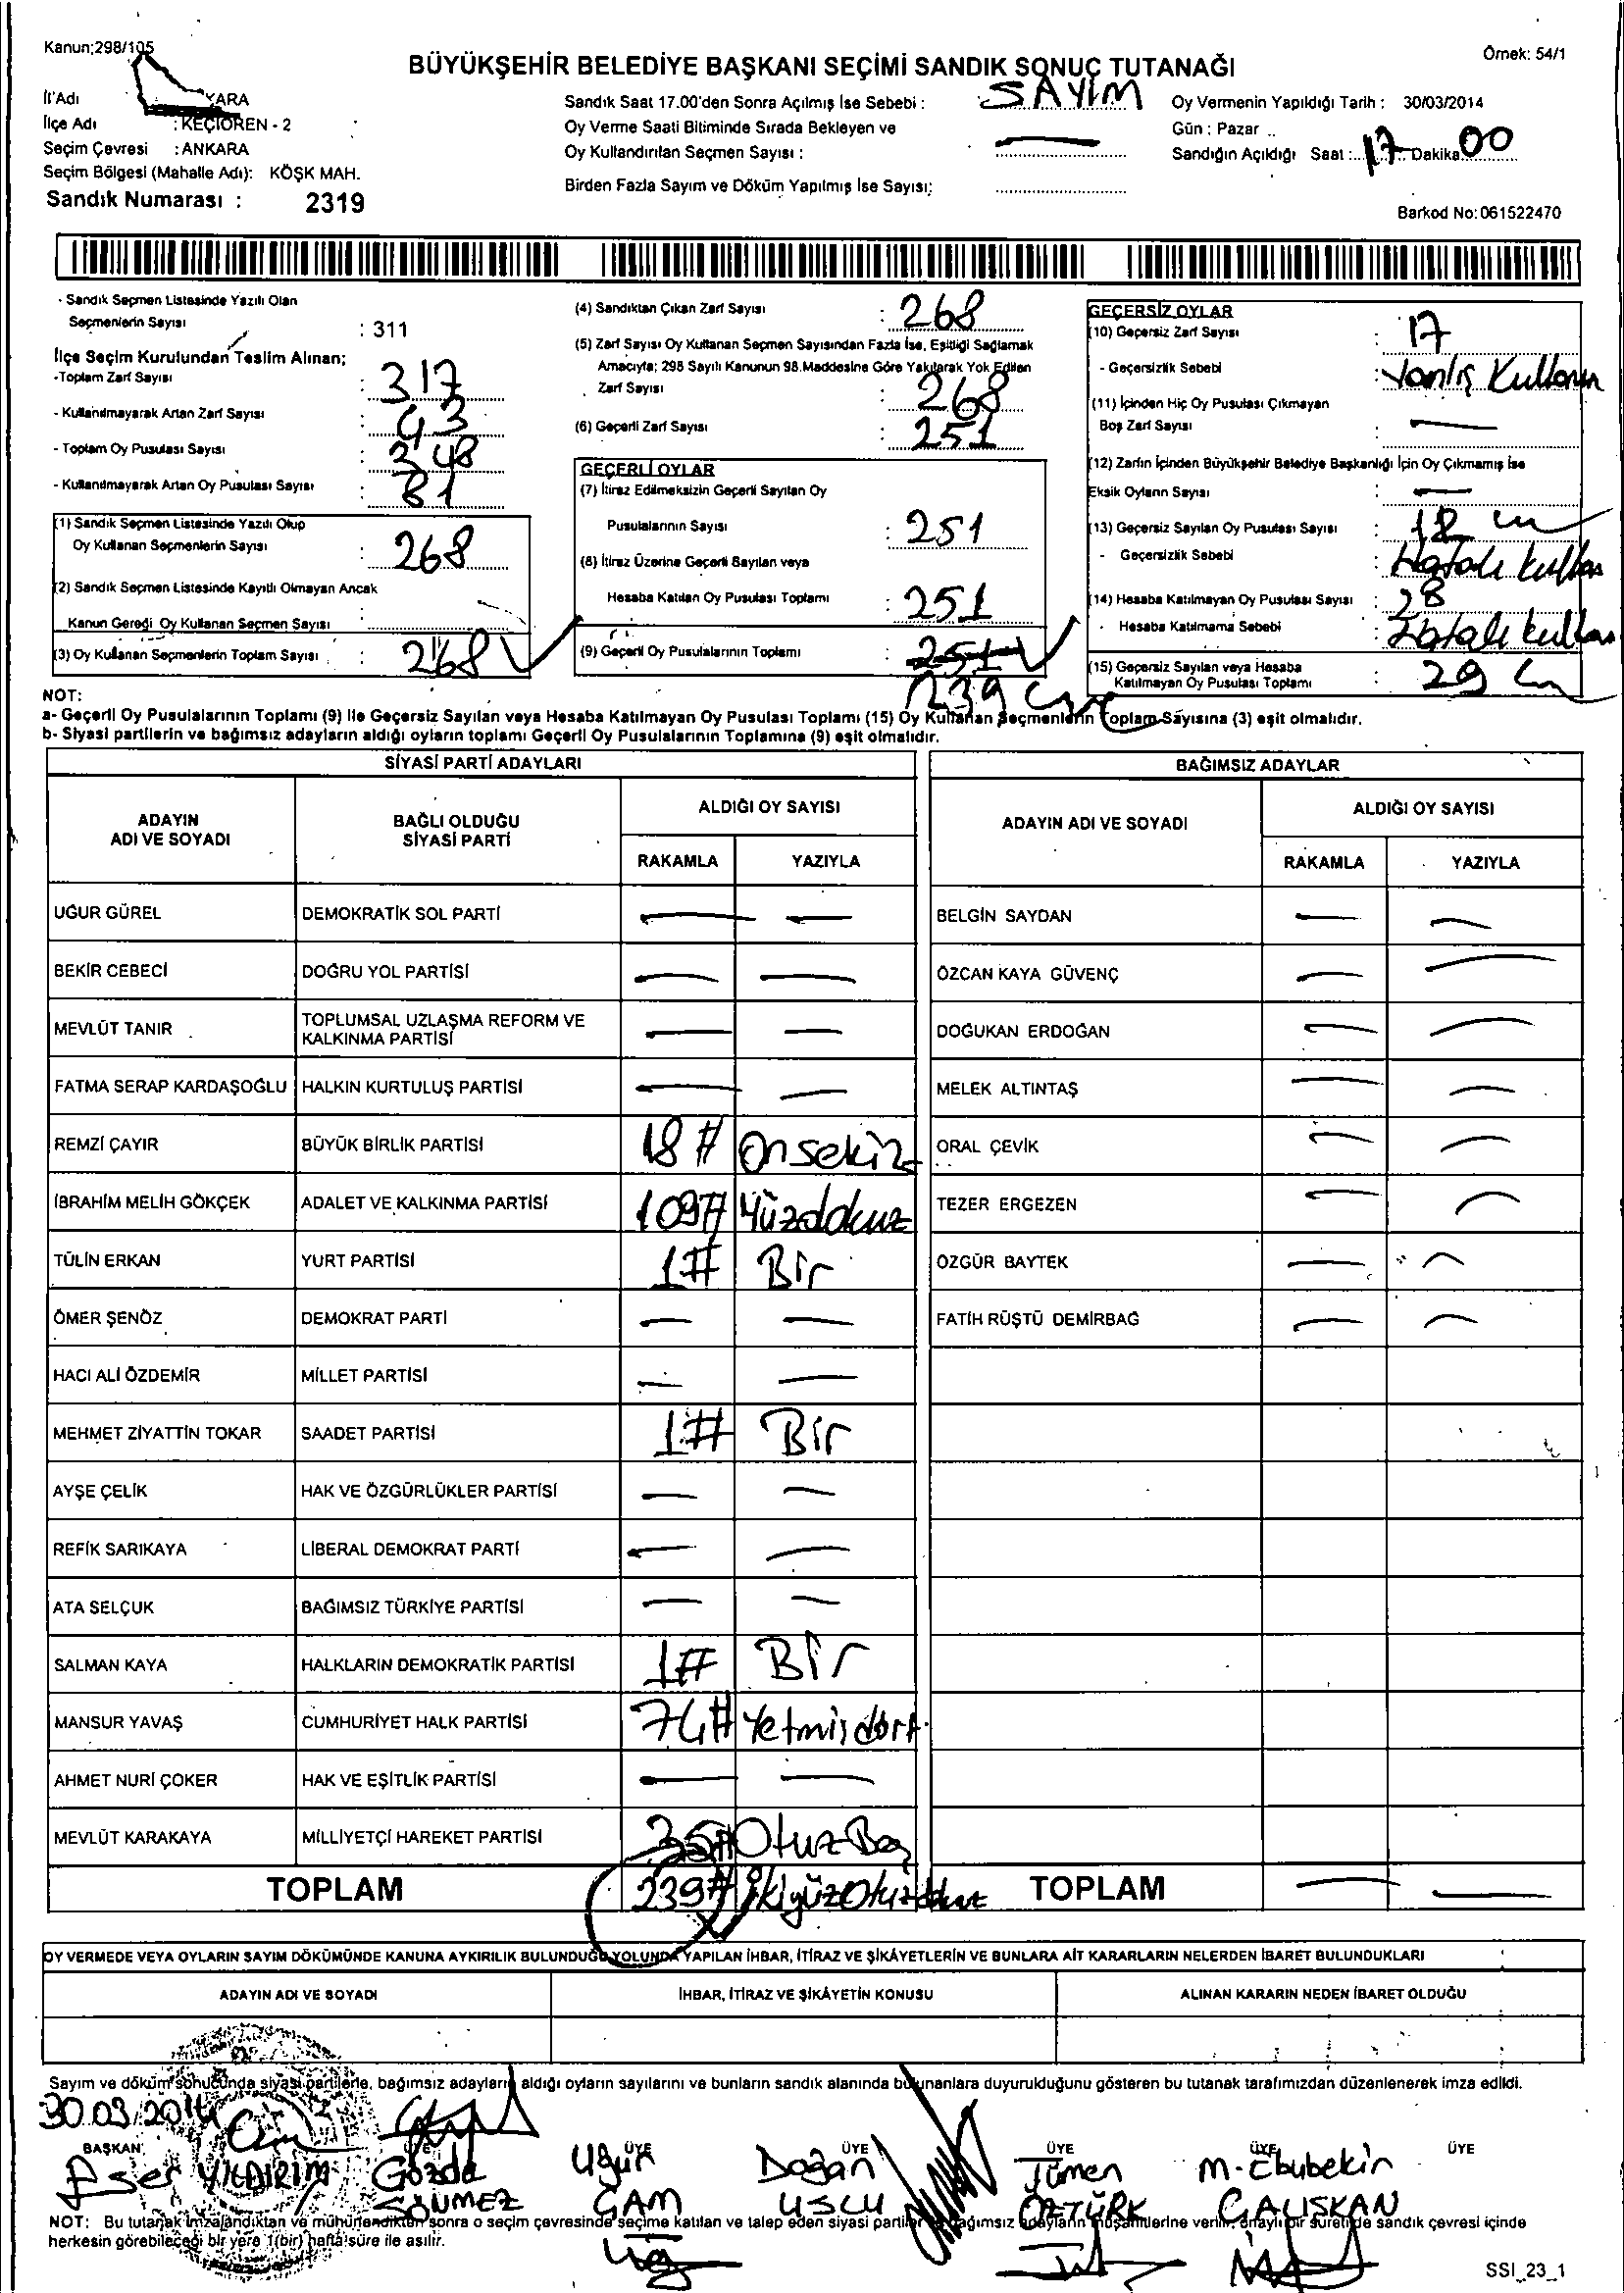 Kanun;298/105
Örnek: 54/1
BÜYÜKŞEHİR BELEDİYE BAŞKANI SEÇİMİ SANDIK SONUÇ TUTANAĞI
İl'Adı KARA
İlçe Adı : KEÇİÖREN - 2
Seçim Çevresi : ANKARA
Seçim Bölgesi (Mahalle Adı): KÖŞK MAH.
Sandık Numarası : 2319
Sandık Saat 17.00'den Sonra Açılmış İse Sebebi : SAYIM
Oy Verme Saati Bitiminde Sırada Bekleyen ve
Oy Kullandırılan Seçmen Sayısı :
Birden Fazla Sayım ve Döküm Yapılmış İse Sayısı;
Oy Vermenin Yapıldığı Tarih : 30/03/2014
Gün : Pazar
Sandığın Açıldığı Saat : 17 Dakika 00
Barkod No: 061522470
- Sandık Seçmen Listesinde Yazılı Olan
Seçmenlerin Sayısı : 311
İlçe Seçim Kurulundan Teslim Alınan;
-Toplam Zarf Sayısı : 317
- Kullanılmayarak Artan Zarf Sayısı : 43
- Toplam Oy Pusulası Sayısı : 348
- Kullanılmayarak Artan Oy Pusulası Sayısı : 81
(1) Sandık Seçmen Listesinde Yazılı Olup
Oy Kullanan Seçmenlerin Sayısı : 268
(2) Sandık Seçmen Listesinde Kayıtlı Olmayan Ancak
Kanun Gereği Oy Kullanan Seçmen Sayısı :
(3) Oy Kullanan Seçmenlerin Toplam Sayısı : 268
(4) Sandıktan Çıkan Zarf Sayısı : 268
(5) Zarf Sayısı Oy Kullanan Seçmen Sayısından Fazla İse, Eşitliği Sağlamak
Amacıyla; 298 Sayılı Kanunun 98.Maddesine Göre Yakılarak Yok Edilen
Zarf Sayısı : 268
(6) Geçerli Zarf Sayısı : 251
GEÇERLİ OYLAR
(7) İtiraz Edilmeksizin Geçerli Sayılan Oy
Pusulalarının Sayısı : 251
(8) İtiraz Üzerine Geçerli Sayılan veya
Hesaba Katılan Oy Pusulası Toplamı : 251
(9) Geçerli Oy Pusulalarının Toplamı : 251
239
GEÇERSİZ OYLAR
(10) Geçersiz Zarf Sayısı : 17
- Geçersizlik Sebebi : Yanlış Kullanım
(11) İçinden Hiç Oy Pusulası Çıkmayan
Boş Zarf Sayısı :
(12) Zarfın İçinden Büyükşehir Belediye Başkanlığı İçin Oy Çıkmamış İse
Eksik Oyların Sayısı :
(13) Geçersiz Sayılan Oy Pusulası Sayısı :
- Geçersizlik Sebebi : Hatalı kullan
(14) Hesaba Katılmayan Oy Pusulası Sayısı : 28
- Hesaba Katılmama Sebebi : Hatalı kullan
(15) Geçersiz Sayılan veya Hesaba
Katılmayan Oy Pusulası Toplamı : 29
NOT:
a- Geçerli Oy Pusulalarının Toplamı (9) ile Geçersiz Sayılan veya Hesaba Katılmayan Oy Pusulası Toplamı (15) Oy Kullanan Seçmenlerin Toplam Sayısına (3) eşit olmalıdır.
b- Siyasi partilerin ve bağımsız adayların aldığı oyların toplamı Geçerli Oy Pusulalarının Toplamına (9) eşit olmalıdır.
SİYASİ PARTİ ADAYLARI
ADAYIN ADI VE SOYADI
BAĞLI OLDUĞU SİYASİ PARTİ
ALDIĞI OY SAYISI
RAKAMLA YAZIYLA
UĞUR GÜREL DEMOKRATİK SOL PARTİ
BEKİR CEBECİ DOĞRU YOL PARTİSİ
MEVLÜT TANIR TOPLUMSAL UZLAŞMA REFORM VE KALKINMA PARTİSİ
FATMA SERAP KARDAŞOĞLU HALKIN KURTULUŞ PARTİSİ
REMZİ ÇAYIR BÜYÜK BİRLİK PARTİSİ 18# Onsekiz
İBRAHİM MELİH GÖKÇEK ADALET VE KALKINMA PARTİSİ 109# Yüzdokuz
TÜLİN ERKAN YURT PARTİSİ 1# Bir
ÖMER ŞENÖZ DEMOKRAT PARTİ
HACI ALİ ÖZDEMİR MİLLET PARTİSİ
MEHMET ZİYATTİN TOKAR SAADET PARTİSİ 1# Bir
AYŞE ÇELİK HAK VE ÖZGÜRLÜKLER PARTİSİ
REFİK SARIKAYA LİBERAL DEMOKRAT PARTİ
ATA SELÇUK BAĞIMSIZ TÜRKİYE PARTİSİ
SALMAN KAYA HALKLARIN DEMOKRATİK PARTİSİ 1# Bir
MANSUR YAVAŞ CUMHURİYET HALK PARTİSİ 74# Yetmişdört
AHMET NURİ ÇOKER HAK VE EŞİTLİK PARTİSİ
MEVLÜT KARAKAYA MİLLİYETÇİ HAREKET PARTİSİ 35# OtuzBeş
TOPLAM 239# İkiyüzOtuzdokuz
BAĞIMSIZ ADAYLAR
ADAYIN ADI VE SOYADI
ALDIĞI OY SAYISI
RAKAMLA YAZIYLA
BELGİN SAYDAN
ÖZCAN KAYA GÜVENÇ
DOĞUKAN ERDOĞAN
MELEK ALTINTAŞ
ORAL ÇEVİK
TEZER ERGEZEN
ÖZGÜR BAYTEK
FATİH RÜŞTÜ DEMİRBAĞ
TOPLAM
OY VERMEDE VEYA OYLARIN SAYIM DÖKÜMÜNDE KANUNA AYKIRILIK BULUNDUĞU YOLUNDA YAPILAN İHBAR, İTİRAZ VE ŞİKÂYETLERİN VE BUNLARA AİT KARARLARIN NELERDEN İBARET BULUNDUKLARI
ADAYIN ADI VE SOYADI
İHBAR, İTİRAZ VE ŞİKÂYETİN KONUSU
ALINAN KARARIN NEDEN İBARET OLDUĞU
Sayım ve döküm sonucunda siyasi partilerle, bağımsız adayların aldığı oyların sayılarını ve bunların sandık alanında bulunanlara duyurulduğunu gösteren bu tutanak tarafımızdan düzenlenerek imza edildi.
30.03.2014
BAŞKAN ÜYE ÜYE ÜYE ÜYE ÜYE ÜYE
Eser YILDIRIM
Gözde SÖNMEZ
Uğur ÇAM
Doğan USLU
Tümen ÖZTÜRK
M. Ebubekir ÇALIŞKAN
NOT: Bu tutanak imzalandıktan ve mühürlendikten sonra o seçim çevresinde seçime katılan ve talep eden siyasi partiler ve bağımsız adayların müşahitlerine verilir, onaylı bir sureti de sandık çevresi içinde
herkesin görebileceği bir yere 1(bir) hafta süre ile asılır.
SSI_23_1